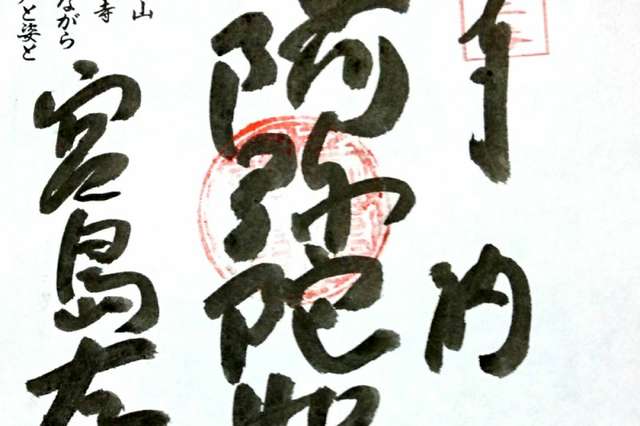 奉内
阿弥陀如
宮島左
山
寺
ながら
と姿と